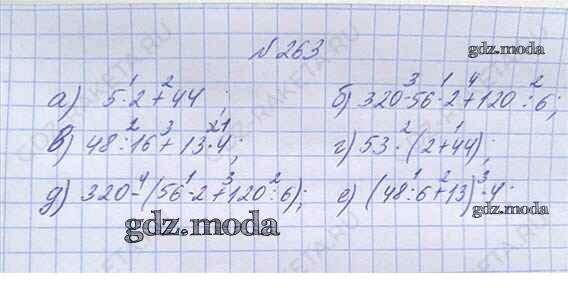 № 263
gdz.moda
а) 5 · 2 + 44 ; б) 320 - 56 · 2 + 120 : 6;
в) 48 : 16 + 13 · 4; г) 53 · (2 + 44);
д) 320 - (56 · 2 + 120 : 6); е) (48 : 6 + 13) · 4.
gdz.moda
gdz.moda